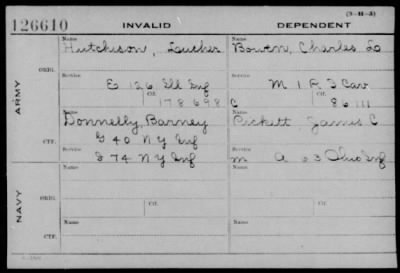 (3-H-3)
126610 INVALID DEPENDENT
ARMY
ORIG.
Name Name
Hutchison, Luther Bowen, Charles
Service Service
E 126 Ill Inf M 1 3 Cav
Ctf. Ctf.
178698 C 86111
CTF.
Name Name
Donnelly, Barney Pickett, James C
G 40 N Y Inf
74 N Y Inf A 63 Ohio Inf
NAVY
ORIG.
Name Name
Service Ctf. Service Ctf.
CTF.
Name Name